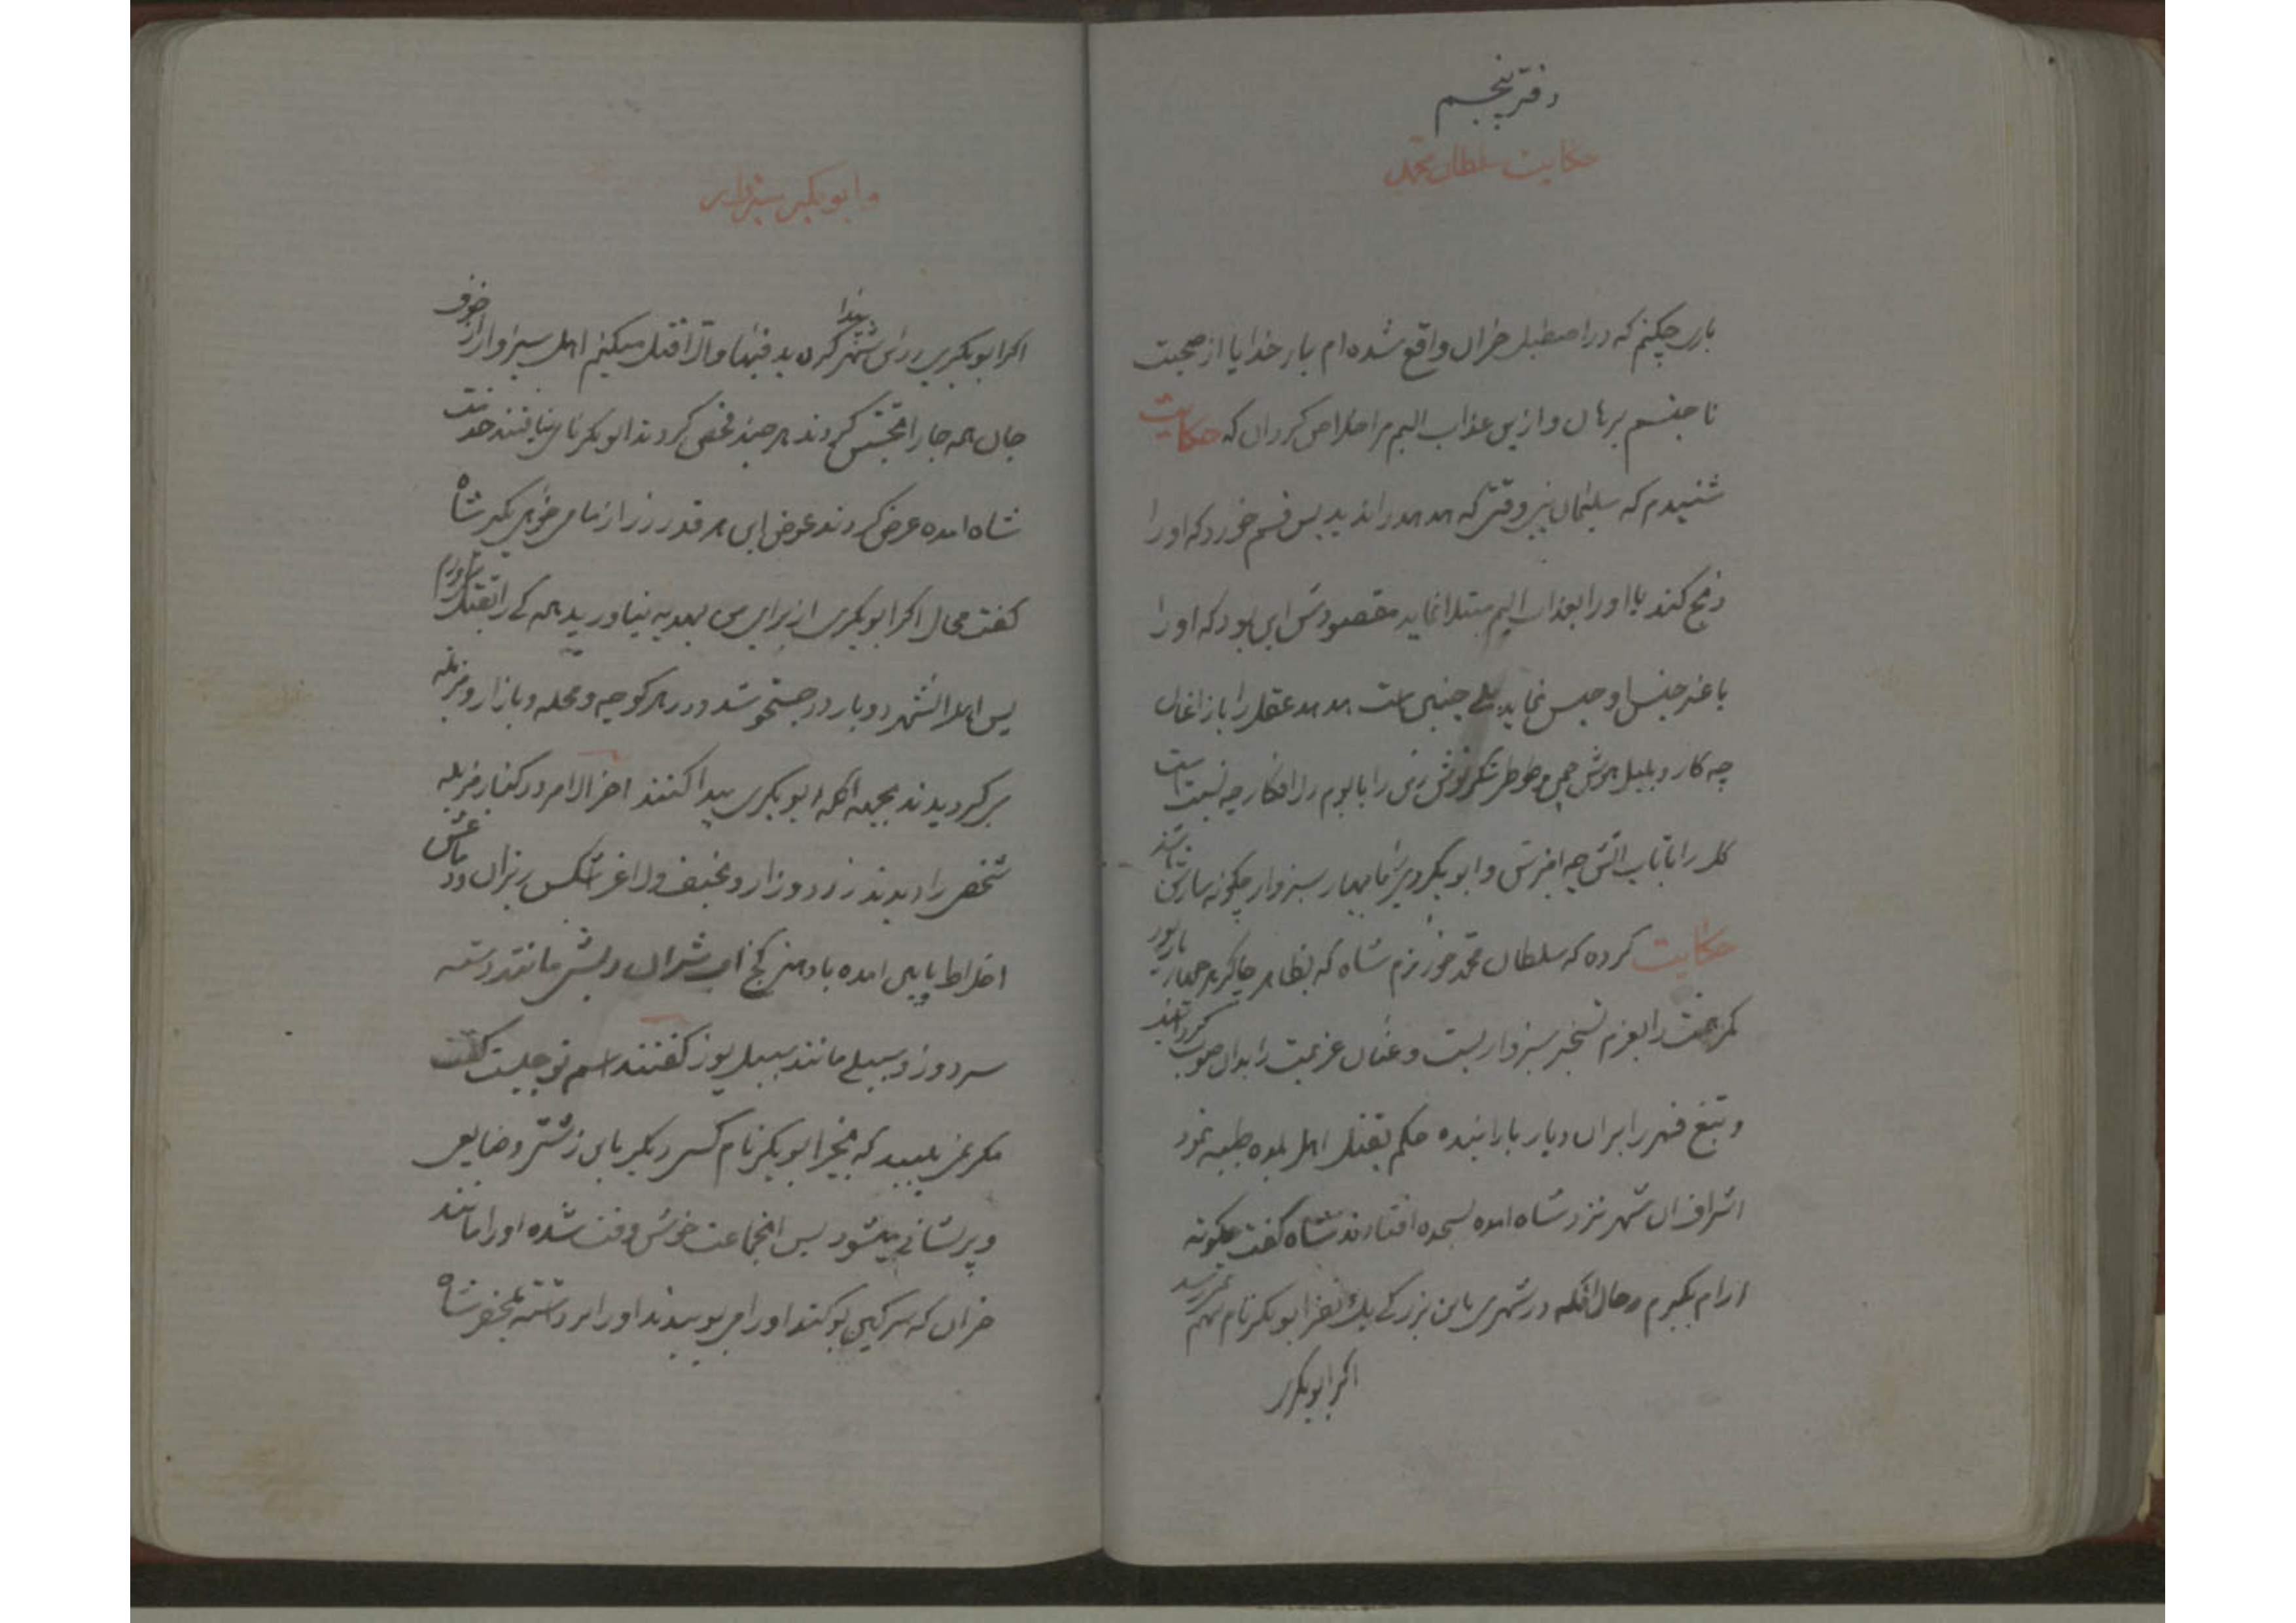 دفتر پنجم
حکایت سلطان محمد
باری چکنم که در اصطبل خران واقع شده ام بار خدایا از صحبت
نا جنسم برهان و ازین عذاب الیم مرا خلاص کردان که حکایت
شنیدم که سلیمان نبی وقتی که هدهد را ندید پس قسم خورد که او را
ذبح کند یا او را بعذاب الیم مبتلا نماید مقصودش این بود که او را
با غیر جنس او حبس نماید بلی چنین است هدهد عقل را با زاغان
چه کار و بلبل چمن و طوطی شکر را با بوم دل افکار چه نسبت است
کل را با تاب اتش چه امیزش و ابوبکر را با دیار سبزوار چکونه سازش باشد
حکایت کرده که سلطان محمد خوارزم شاه که بظاهر چاکر یار بود
کمر همت را بعزم تسخیر سبزوار بست و عنان عزیمت را بدان صوب
و تیغ قهر را بران دیار بارانیده حکم بقتل اهل بلوه طیبه نمود
اشراف ان شهر نزد شاه امده بسجده افتادند شاه کفت چکونه
ارام بکیرم و حال انکه در شهری باین بزرکی یک نفر ابوبکر نام بهم نمیرسد
اکر ابوبکری
و ابوبکر سبزواری
اکر ابوبکری در این شهر پیدا کردید فبها و الا قتل میکنم اهل سبزوار از خوف
جان همه جا را تجسس کردند هر چند تفحص کردند ابوبکر نامی نیافتند خدمت
شاه امده عرض کردند عوض این هر قدر زر از ما می خواهی بکیر شاه
کفت محال اکر ابوبکری از برای من بهدیه نیاورید همه کی را بقتل
پس اهل انشهر دوباره در جستجو شد و در هر کوچه و محله و بازار و مزبله
بر کردیدند بجهه انکه ابوبکری پیدا کنند اخر الامر در کنار مزبله
شخصی را دیدند زرد و زار و نحیف و لاغر
اخلاط پایین امده با دهن کج ریش مانند دسته
سر دوز و سبیلی مانند سبیل یوز کفتند اسم تو چیست کفت
مکر نمی بینید که بخیر ابوبکر نام کسی دیکر باین زشتی و ضایعی
و پریشانی میشود پس انجماعت خوش وقت شده او را مانند
خران که سرکین بو کنند او را می بوییدند او را بر داشته بحضر شاه